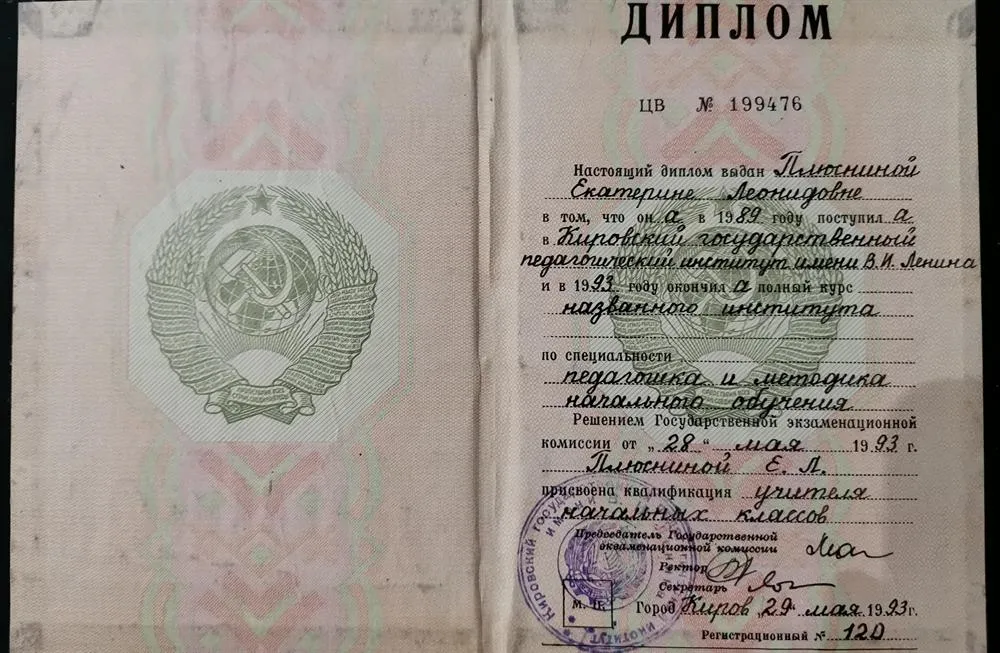 ДИПЛОМ
ЦВ № 199476
Настоящий диплом выдан Плюсниной
Екатерине Леонидовне
в том, что он а в 1989 году поступил а
в Кировский государственный
педагогический институт имени В.И. Ленина
и в 1993 году окончил а полный курс
названного института
по специальности
педагогика и методика
начального обучения
Решением Государственной экзаменационной
комиссии от „28“ мая 1993 г.
Плюсниной Е. Л.
присвоена квалификация учителя
начальных классов
Председатель Государственной
экзаменационной комиссии
Ректор
Секретарь
М. П.
Город Киров „29“ мая 1993 г.
Регистрационный № 120